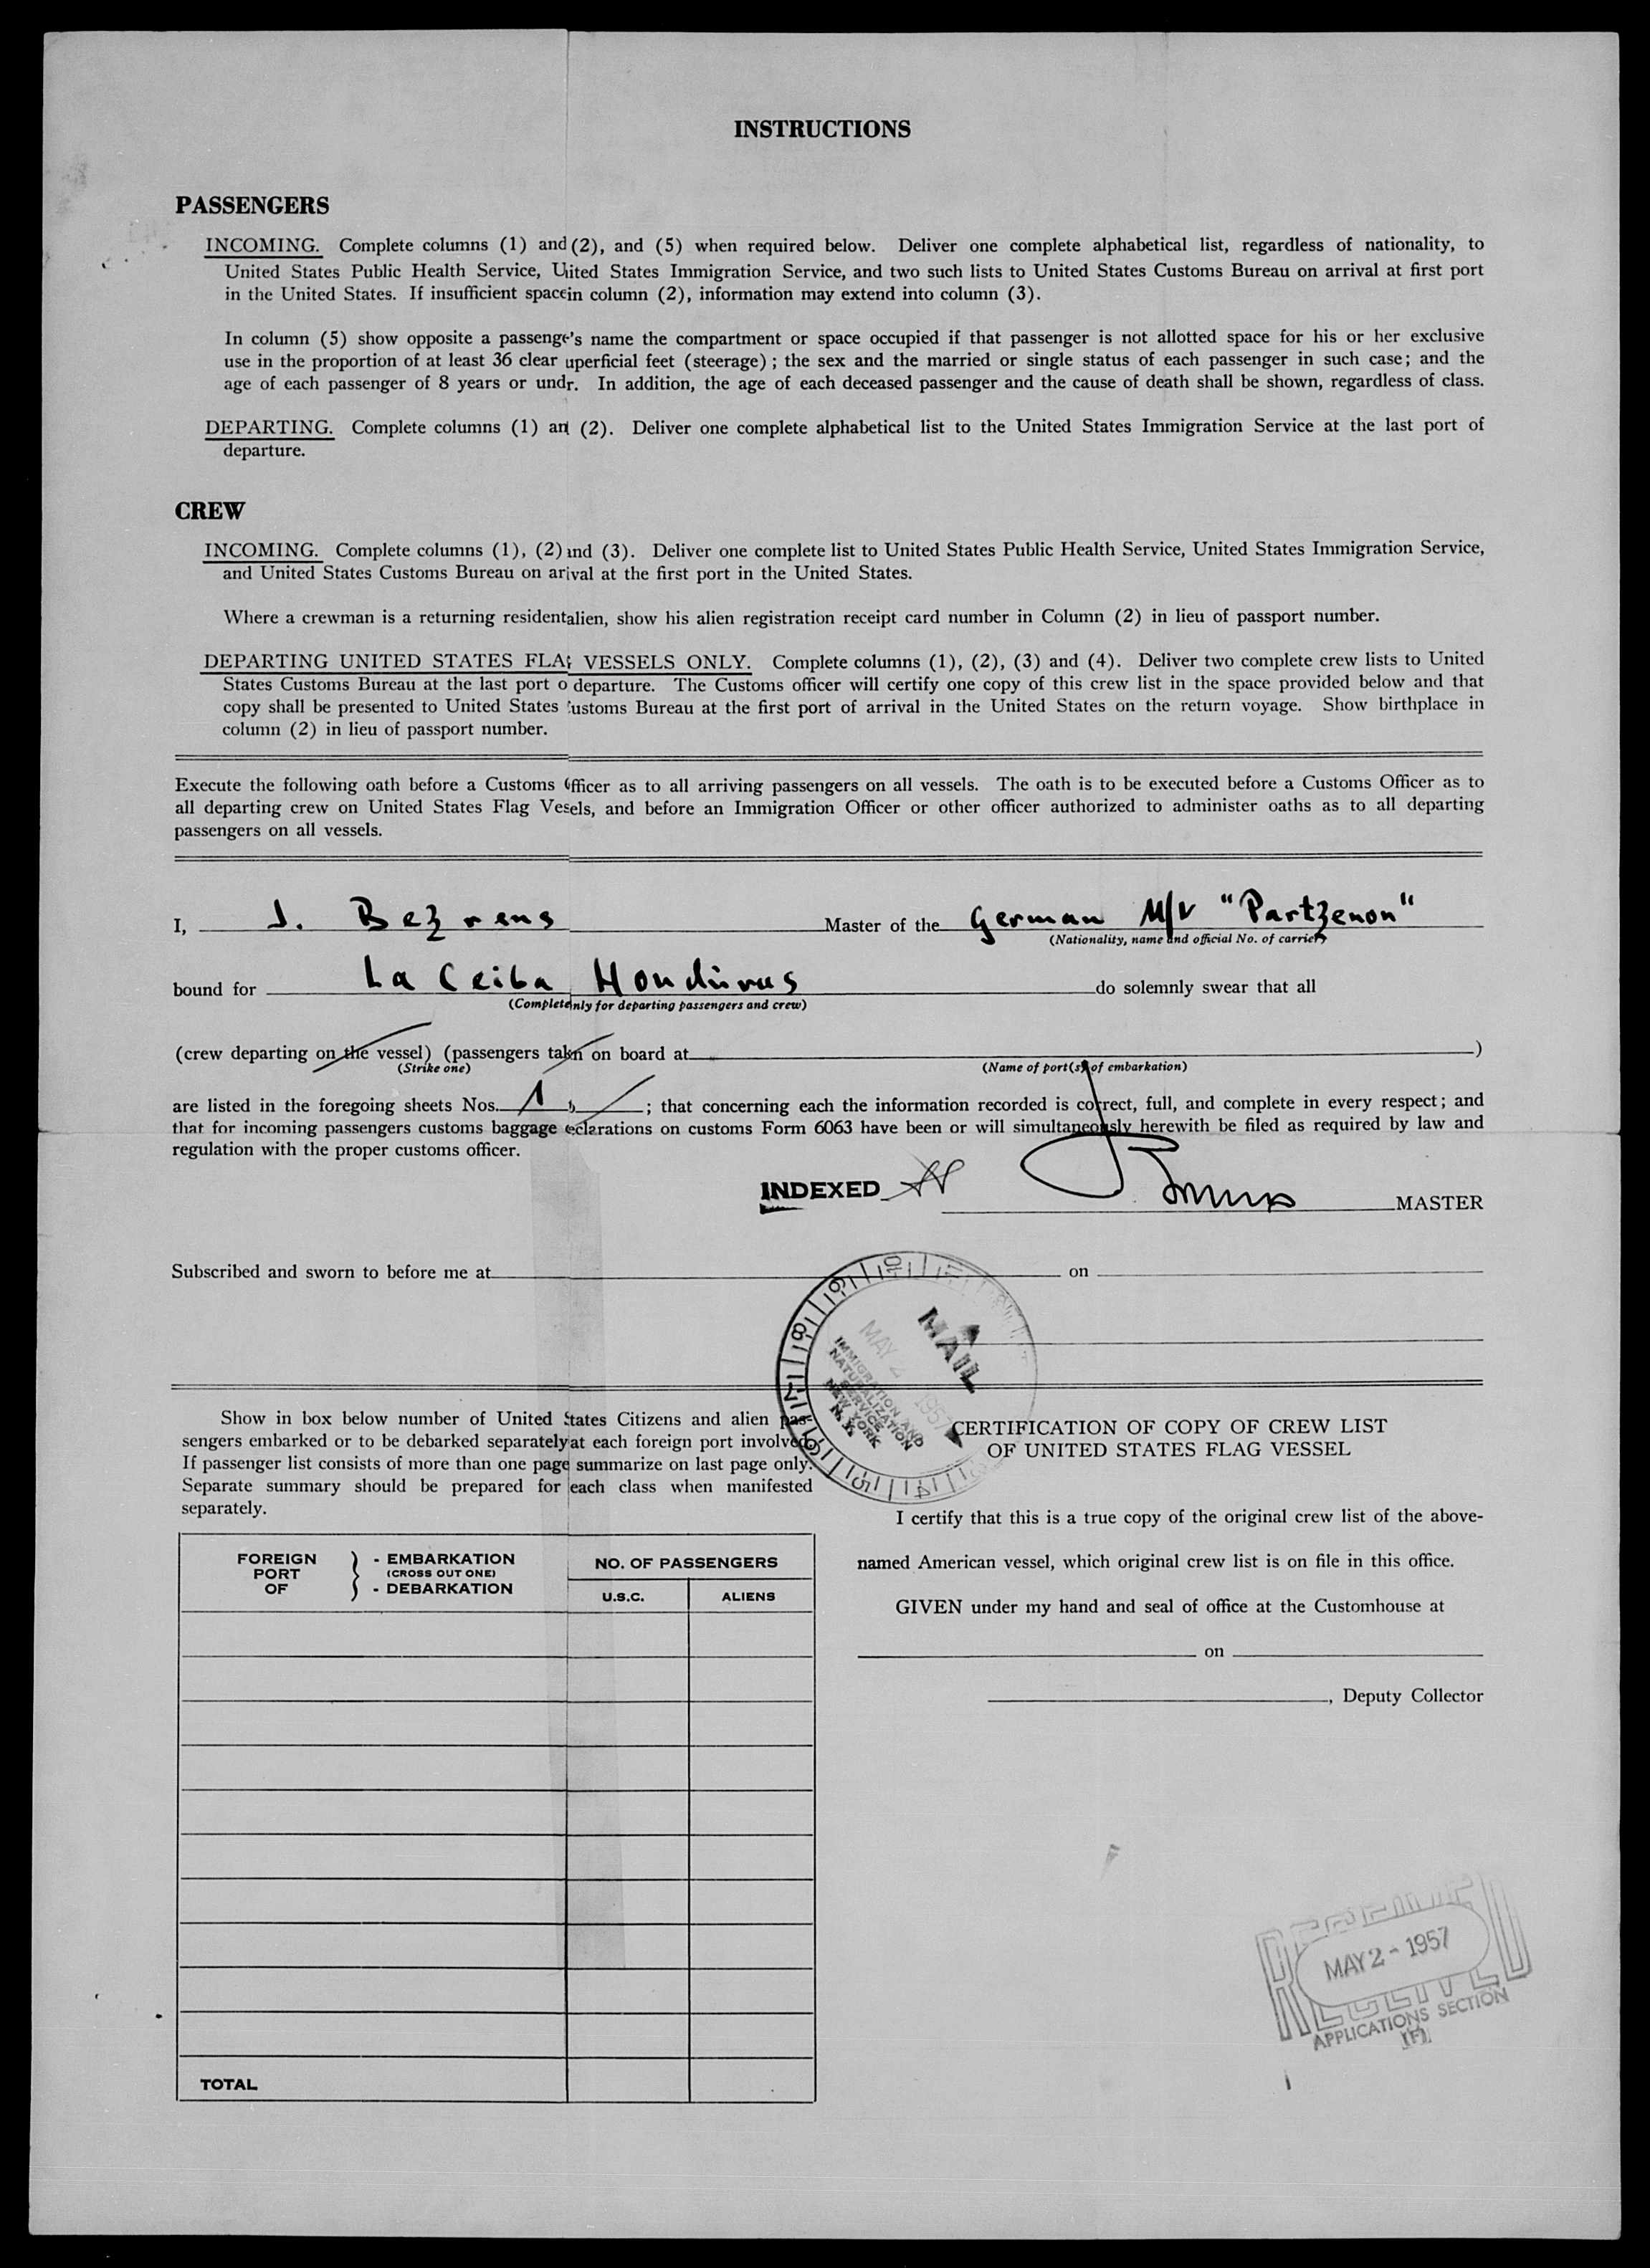 INSTRUCTIONS
PASSENGERS
INCOMING. Complete columns (1) and (2), and (5) when required below. Deliver one complete alphabetical list, regardless of nationality, to
United States Public Health Service, Uited States Immigration Service, and two such lists to United States Customs Bureau on arrival at first port
in the United States. If insufficient space in column (2), information may extend into column (3).
In column (5) show opposite a passenge's name the compartment or space occupied if that passenger is not allotted space for his or her exclusive
use in the proportion of at least 36 clear uperficial feet (steerage); the sex and the married or single status of each passenger in such case; and the
age of each passenger of 8 years or undr. In addition, the age of each deceased passenger and the cause of death shall be shown, regardless of class.
DEPARTING. Complete columns (1) an (2). Deliver one complete alphabetical list to the United States Immigration Service at the last port of
departure.
CREW
INCOMING. Complete columns (1), (2) and (3). Deliver one complete list to United States Public Health Service, United States Immigration Service,
and United States Customs Bureau on arival at the first port in the United States.
Where a crewman is a returning resident alien, show his alien registration receipt card number in Column (2) in lieu of passport number.
DEPARTING UNITED STATES FLAG VESSELS ONLY. Complete columns (1), (2), (3) and (4). Deliver two complete crew lists to United
States Customs Bureau at the last port o departure. The Customs officer will certify one copy of this crew list in the space provided below and that
copy shall be presented to United States Customs Bureau at the first port of arrival in the United States on the return voyage. Show birthplace in
column (2) in lieu of passport number.
Execute the following oath before a Customs Officer as to all arriving passengers on all vessels. The oath is to be executed before a Customs Officer as to
all departing crew on United States Flag Vesels, and before an Immigration Officer or other officer authorized to administer oaths as to all departing
passengers on all vessels.
I, J. Behrens Master of the German M/V "Parthenon"
(Nationality, name and official No. of carrier)
bound for La Ceiba Honduras do solemnly swear that all
(Complete only for departing passengers and crew)
(crew departing on the vessel) (passengers takn on board at )
(Strike one) (Name of port(s) of embarkation)
are listed in the foregoing sheets Nos. 1 , ; that concerning each the information recorded is correct, full, and complete in every respect; and
that for incoming passengers customs baggage eclarations on customs Form 6063 have been or will simultaneously herewith be filed as required by law and
regulation with the proper customs officer.
INDEXED MASTER
Subscribed and sworn to before me at on
MAIL
MAY 2 1957
IMMIGRATION AND
NATURALIZATION
SERVICE
NEW YORK
N. Y.
Show in box below number of United States Citizens and alien pas-
sengers embarked or to be debarked separately at each foreign port involved.
If passenger list consists of more than one page summarize on last page only.
Separate summary should be prepared for each class when manifested
separately.
FOREIGN PORT OF - EMBARKATION (CROSS OUT ONE) - DEBARKATION
NO. OF PASSENGERS
U.S.C. ALIENS
TOTAL
CERTIFICATION OF COPY OF CREW LIST
OF UNITED STATES FLAG VESSEL
I certify that this is a true copy of the original crew list of the above-
named American vessel, which original crew list is on file in this office.
GIVEN under my hand and seal of office at the Customhouse at
on
, Deputy Collector
RECEIVED
MAY 2 - 1957
APPLICATIONS SECTION